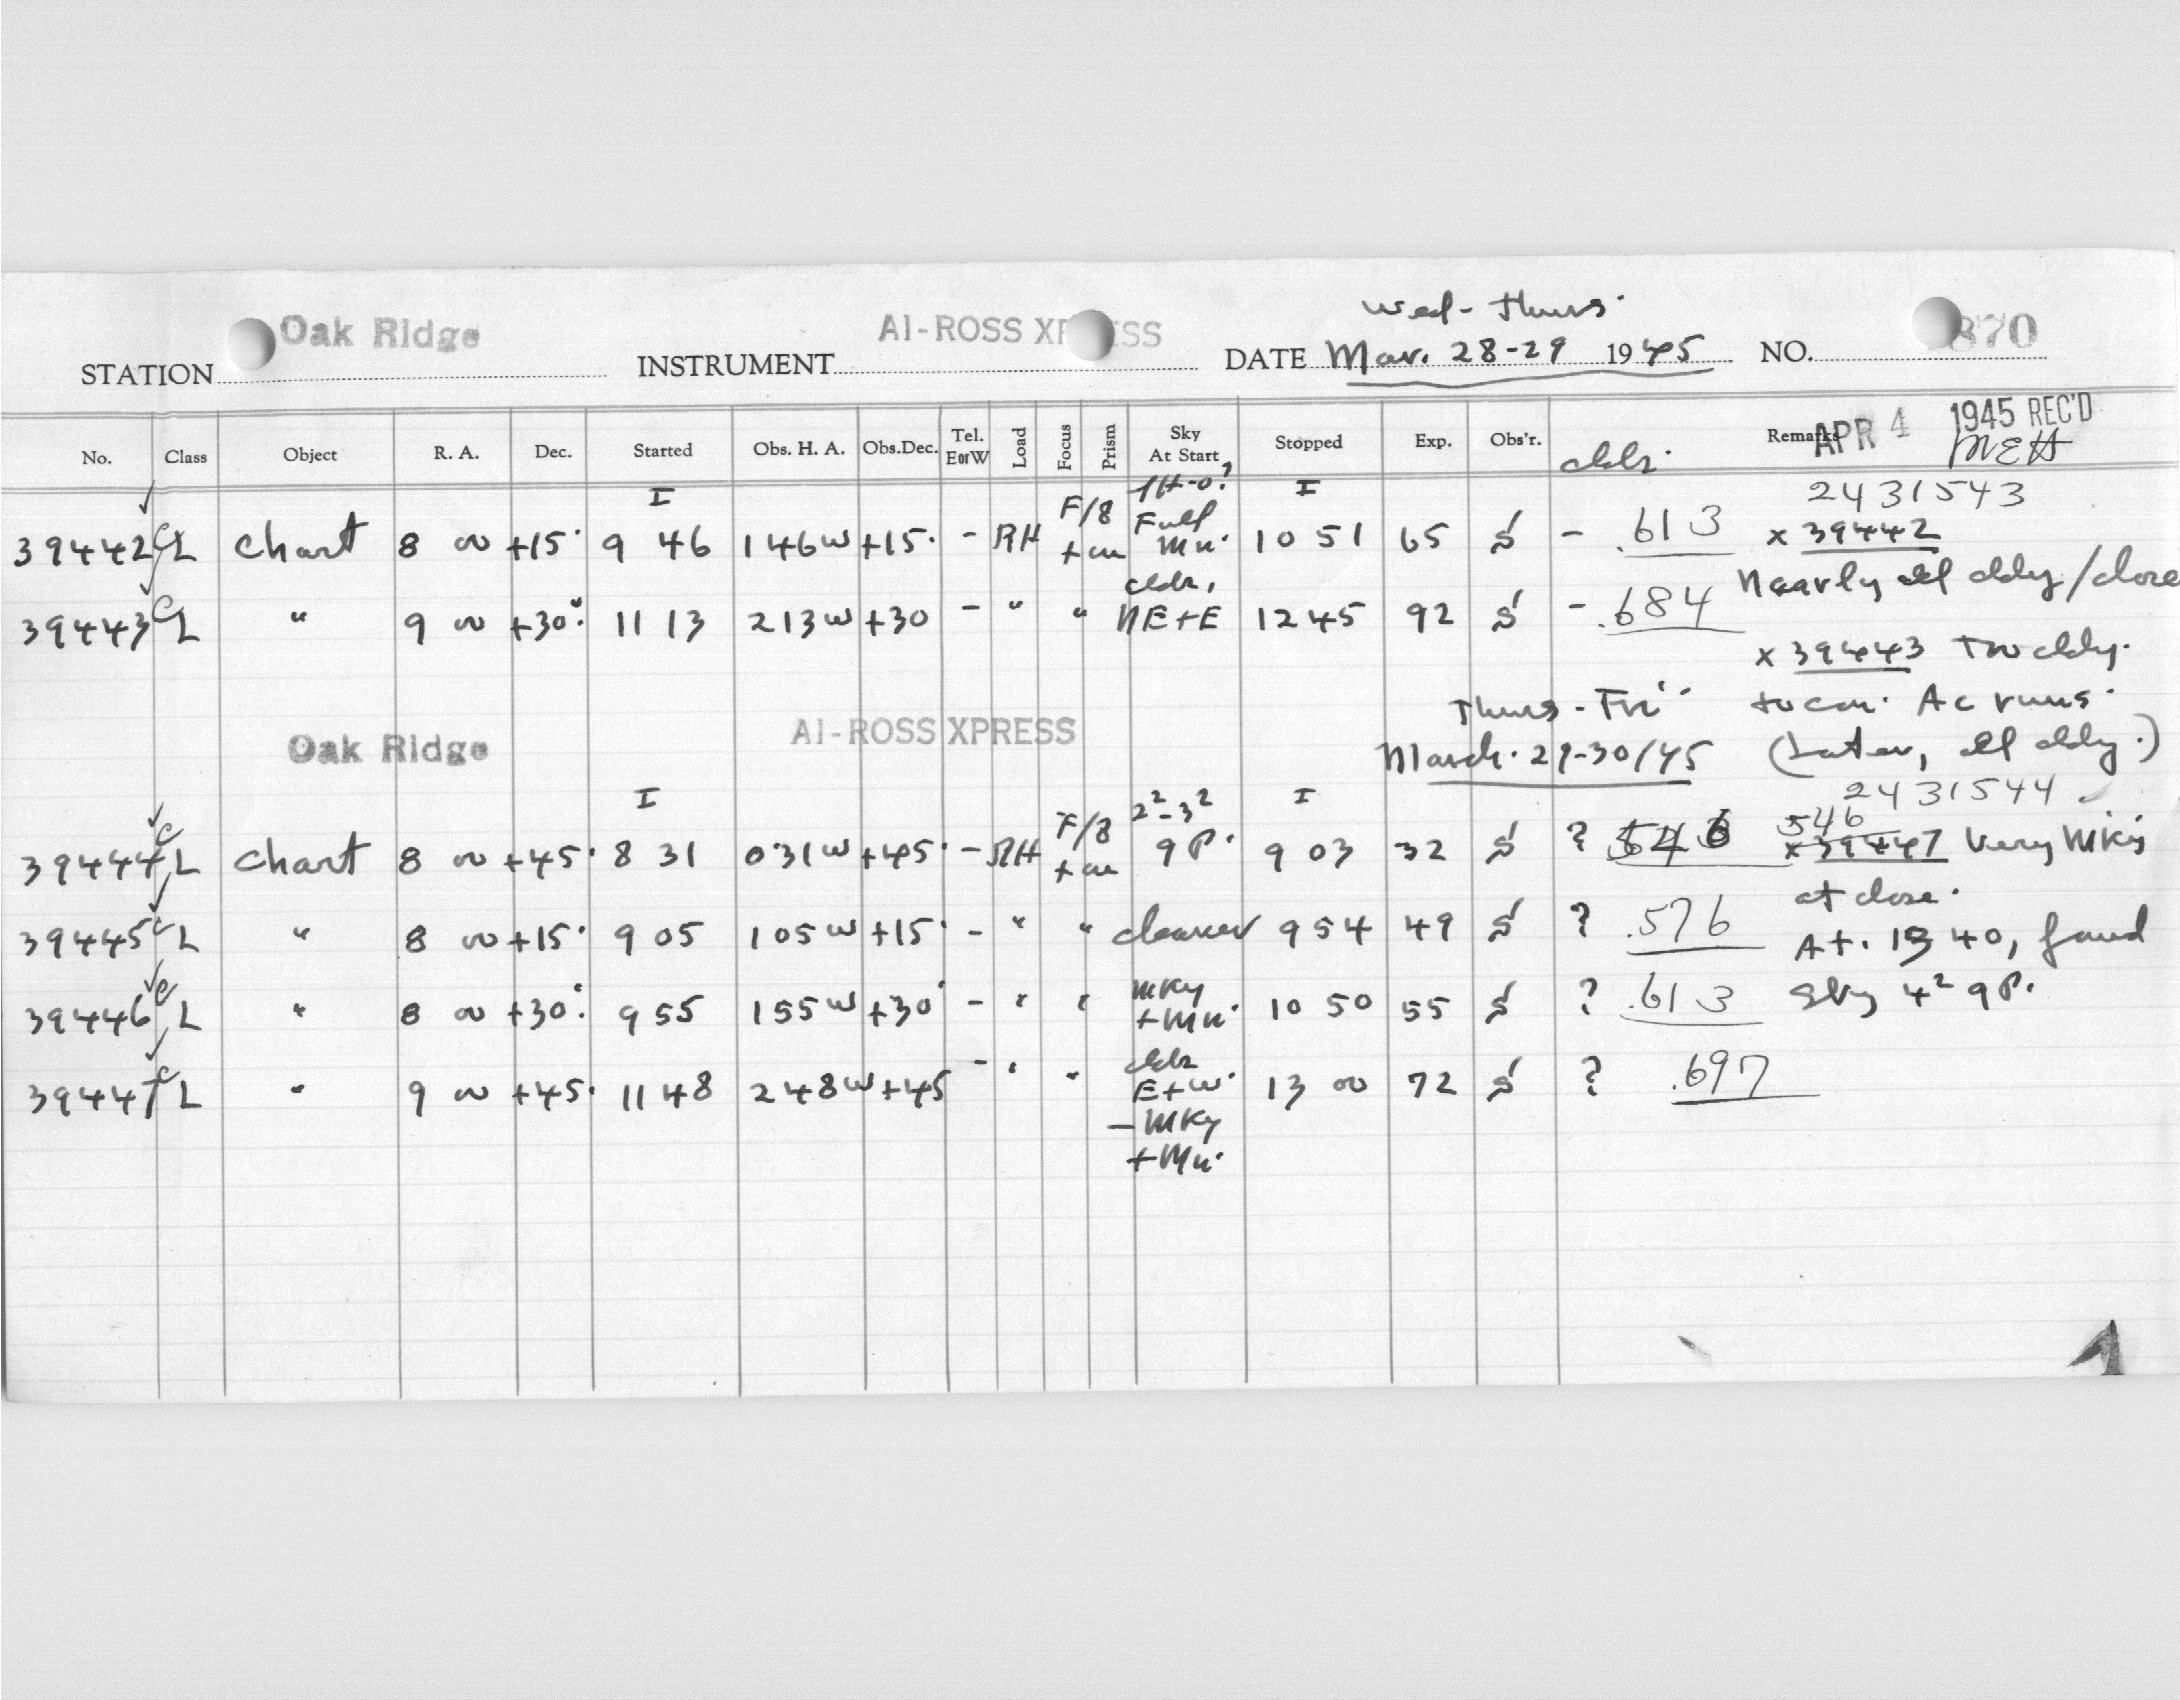 Wed - Thurs.
STATION Oak Ridge INSTRUMENT AI-ROSS XPRESS DATE Mar. 28-29 1945 NO. 870
No. Class Object R. A. Dec. Started Obs. H. A. Obs.Dec. Tel. E or W Load Focus Prism Sky At Start Stopped Exp. Obs'r. cldr. Remarks APR 4 1945 REC'D
MEH
I I 2431543
39442 CL Chart 8 00 +15° 9 46 1 46 W +15° - RH F/8 Full Mn. 10 51 65 - .613 x 39442
Nearly all cldy/close
39443 CL " 9 00 +30° 11 13 2 13 W +30 - " " cldr, NE+E 12 45 92 - .684
x 39443 Too cldy.
to con. Ac runs.
(Later, all cldy.)
Oak Ridge AI-ROSS XPRESS Thurs - Fri.
March. 29-30/45
I I 2431544
39444 CL Chart 8 00 +45° 8 31 0 31 W +45° - RH F/8 2² - 3² 9 P. 9 03 32 ? 546 x 39447 Very Mky
at close.
39445 CL " 8 00 +15° 9 05 1 05 W +15° - " " cleaner 9 54 49 ? .576
At. 13 40, found
39446 CL " 8 00 +30° 9 55 1 55 W +30° - " " Mky +Mn. 10 50 55 ? .613
Sky 4² 9P.
39447 CL " 9 00 +45° 11 48 2 48 W +45 - " " cldr E+W. 13 00 72 ? .697
- Mky
+Mn.